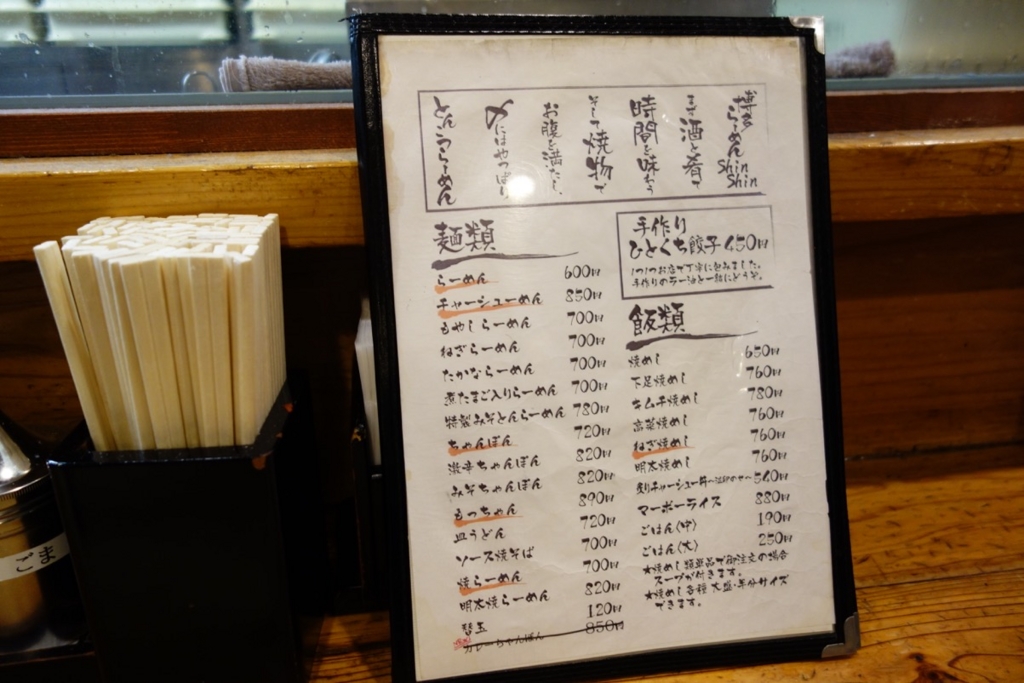 博多らーめん ShinShin
まず酒と肴で
時間を味わう
そして焼物で
お腹を満たし、
〆にはやっぱり
とんこつらーめん
手作り
ひとくち餃子 450円
1つ1つお店で丁寧に包みました。
手作りのラー油と一緒にどうぞ。
麺類
らーめん 600円
チャーシューめん 850円
もやしらーめん 700円
ねぎらーめん 700円
たかならーめん 700円
煮たまご入りらーめん 700円
特製みそとんらーめん 780円
ちゃんぽん 720円
激辛ちゃんぽん 820円
みそちゃんぽん 820円
もっちゃん 890円
皿うどん 720円
ソース焼そば 700円
焼らーめん 700円
明太焼らーめん 820円
替玉 120円
カレーちゃんぽん 850円
飯類
焼めし 650円
下足焼めし 760円
キムチ焼めし 780円
高菜焼めし 760円
ねぎ焼めし 760円
明太焼めし 760円
炙りチャーシュー丼 540円
マーボーライス 880円
ごはん〈中〉 190円
ごはん〈大〉 250円
★焼めし類単品で御注文の場合
スープが付きます。
★焼めし各種 大盛・半分サイズ
できます。
ごま